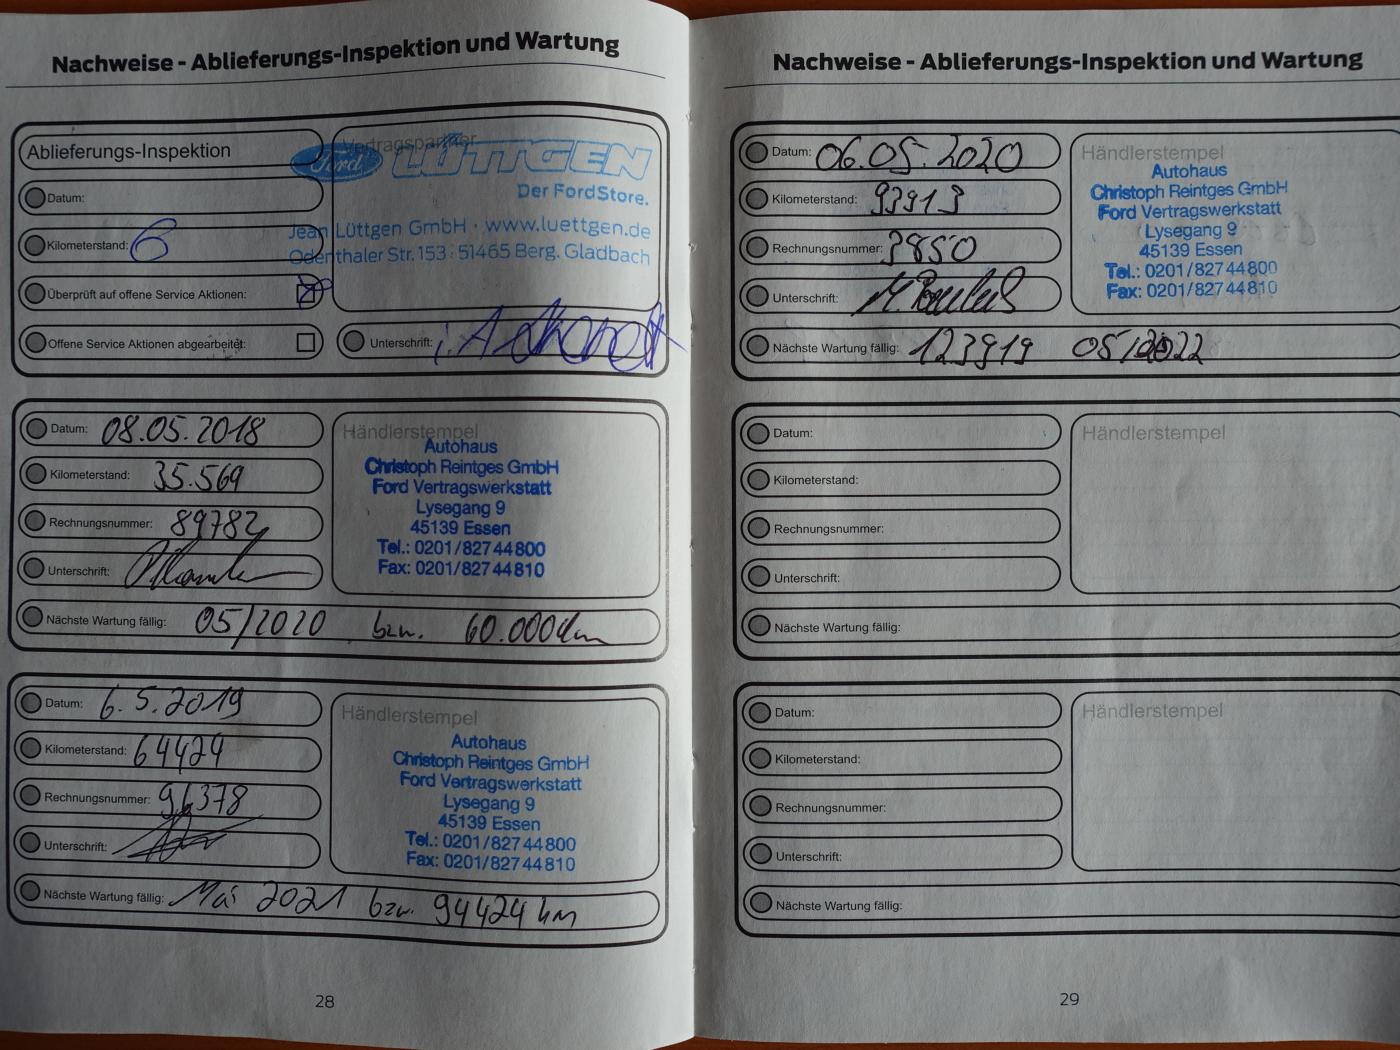 Nachweise - Ablieferungs-Inspektion und Wartung
Ablieferungs-Inspektion
Vertragspartner
Ford LÜTTGEN
Der FordStore.
Jean Lüttgen GmbH · www.luettgen.de
Odenthaler Str. 153 · 51465 Berg. Gladbach
Datum:
Kilometerstand: 6
Überprüft auf offene Service Aktionen:
Offene Service Aktionen abgearbeitet:
Unterschrift:
Datum: 08.05.2018
Kilometerstand: 35.569
Rechnungsnummer: 89782
Unterschrift:
Händlerstempel
Autohaus
Christoph Reintges GmbH
Ford Vertragswerkstatt
Lysegang 9
45139 Essen
Tel.: 0201/82744800
Fax: 0201/82744810
Nächste Wartung fällig: 05/2020 bzw. 60.000km
Datum: 6.5.2019
Kilometerstand: 64424
Rechnungsnummer: 96378
Unterschrift:
Händlerstempel
Autohaus
Christoph Reintges GmbH
Ford Vertragswerkstatt
Lysegang 9
45139 Essen
Tel.: 0201/82744800
Fax: 0201/82744810
Nächste Wartung fällig: Mai 2021 bzw. 94424 km
28
Nachweise - Ablieferungs-Inspektion und Wartung
Datum: 06.05.2020
Kilometerstand: 93919
Rechnungsnummer: 3850
Unterschrift:
Händlerstempel
Autohaus
Christoph Reintges GmbH
Ford Vertragswerkstatt
Lysegang 9
45139 Essen
Tel.: 0201/82744800
Fax: 0201/82744810
Nächste Wartung fällig: 123919 05/2022
Datum:
Kilometerstand:
Rechnungsnummer:
Unterschrift:
Händlerstempel
Nächste Wartung fällig:
Datum:
Kilometerstand:
Rechnungsnummer:
Unterschrift:
Händlerstempel
Nächste Wartung fällig:
29